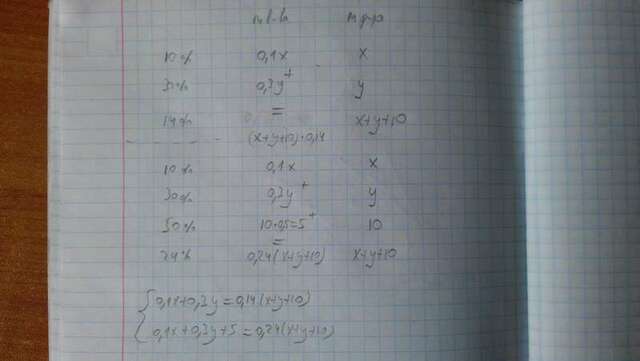 m в-ва m р-ра
10% 0,1x x
30% 0,3y + y
=
14% x+y+10
(x+y+10)·0,14
10% 0,1x x
30% 0,3y + y
50% 10·0,5=5 + 10
=
24% 0,24(x+y+10) x+y+10
{ 0,1x+0,3y=0,14(x+y+10)
0,1x+0,3y+5=0,24(x+y+10)